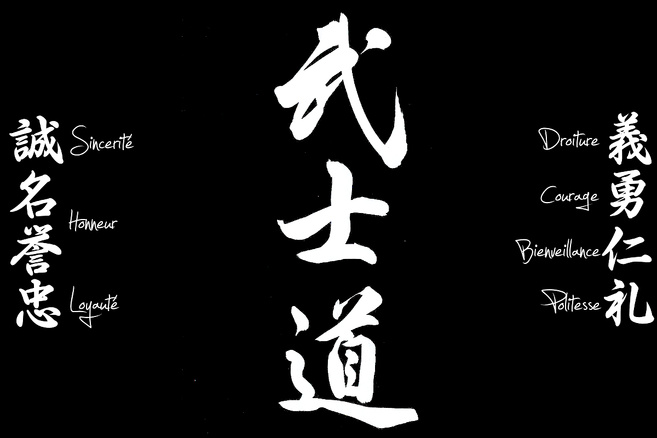 武士道
義 Droiture
勇 Courage
仁 Bienveillance
礼 Politesse
誠 Sincerité
名誉 Honneur
忠 Loyauté